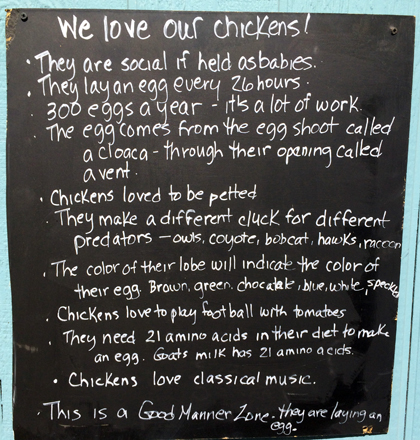 We love our chickens!
• They are social if held as babies.
• They lay an egg every 26 hours.
• 300 eggs a year - it's a lot of work.
• The egg comes from the egg shoot called
a cloaca - through their opening called
a vent.
• Chickens loved to be petted
• They make a different cluck for different
predators - owls, coyote, bobcat, hawks, racoon
• The color of their lobe will indicate the color of
their egg. Brown, green, chocolate, blue, white, speckled
• Chickens love to play football with tomatoes
• They need 21 amino acids in their diet to make
an egg. Goats milk has 21 amino acids.
• Chickens love classical music.
• This is a Good Manner Zone. they are laying an
egg.